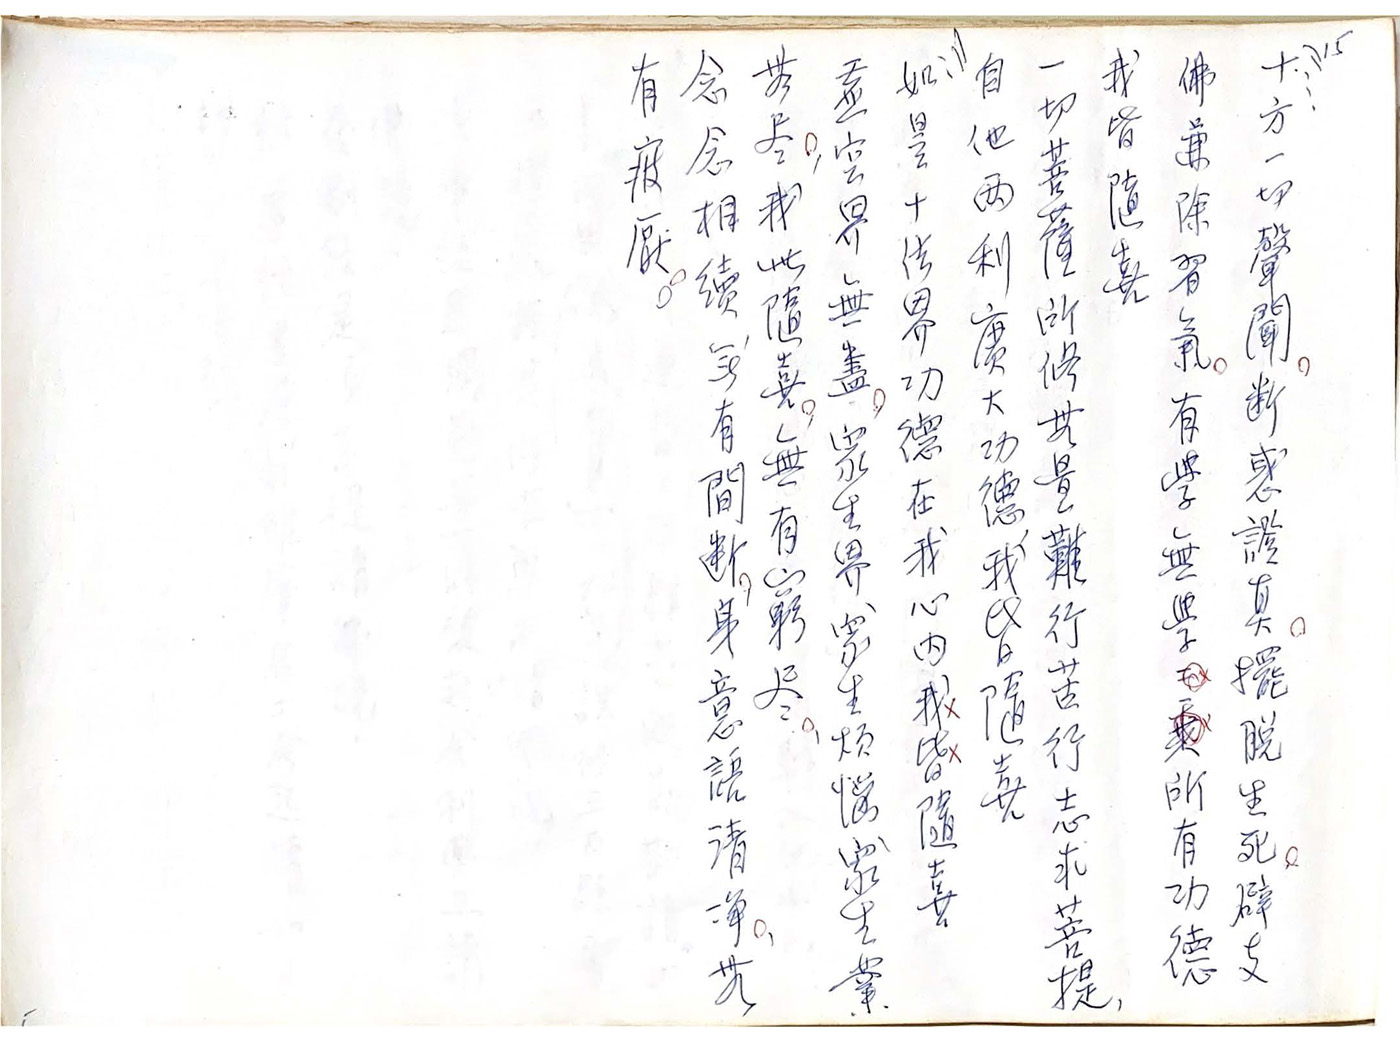 15
十方一切聲聞。斷惑證真。擺脫生死。辟支
佛兼除習氣。有學無學所有功德
我皆隨喜
一切菩薩所修無量難行苦行志求菩提，
自他兩利廣大功德，我皆隨喜
如是十法界功德在我心内我皆隨喜
虛空界無盡，眾生界眾生煩惱眾生業
無尽，我此隨喜，無有窮尽。，
念念相續無有間断，身意語清淨。，無
有疲厭。